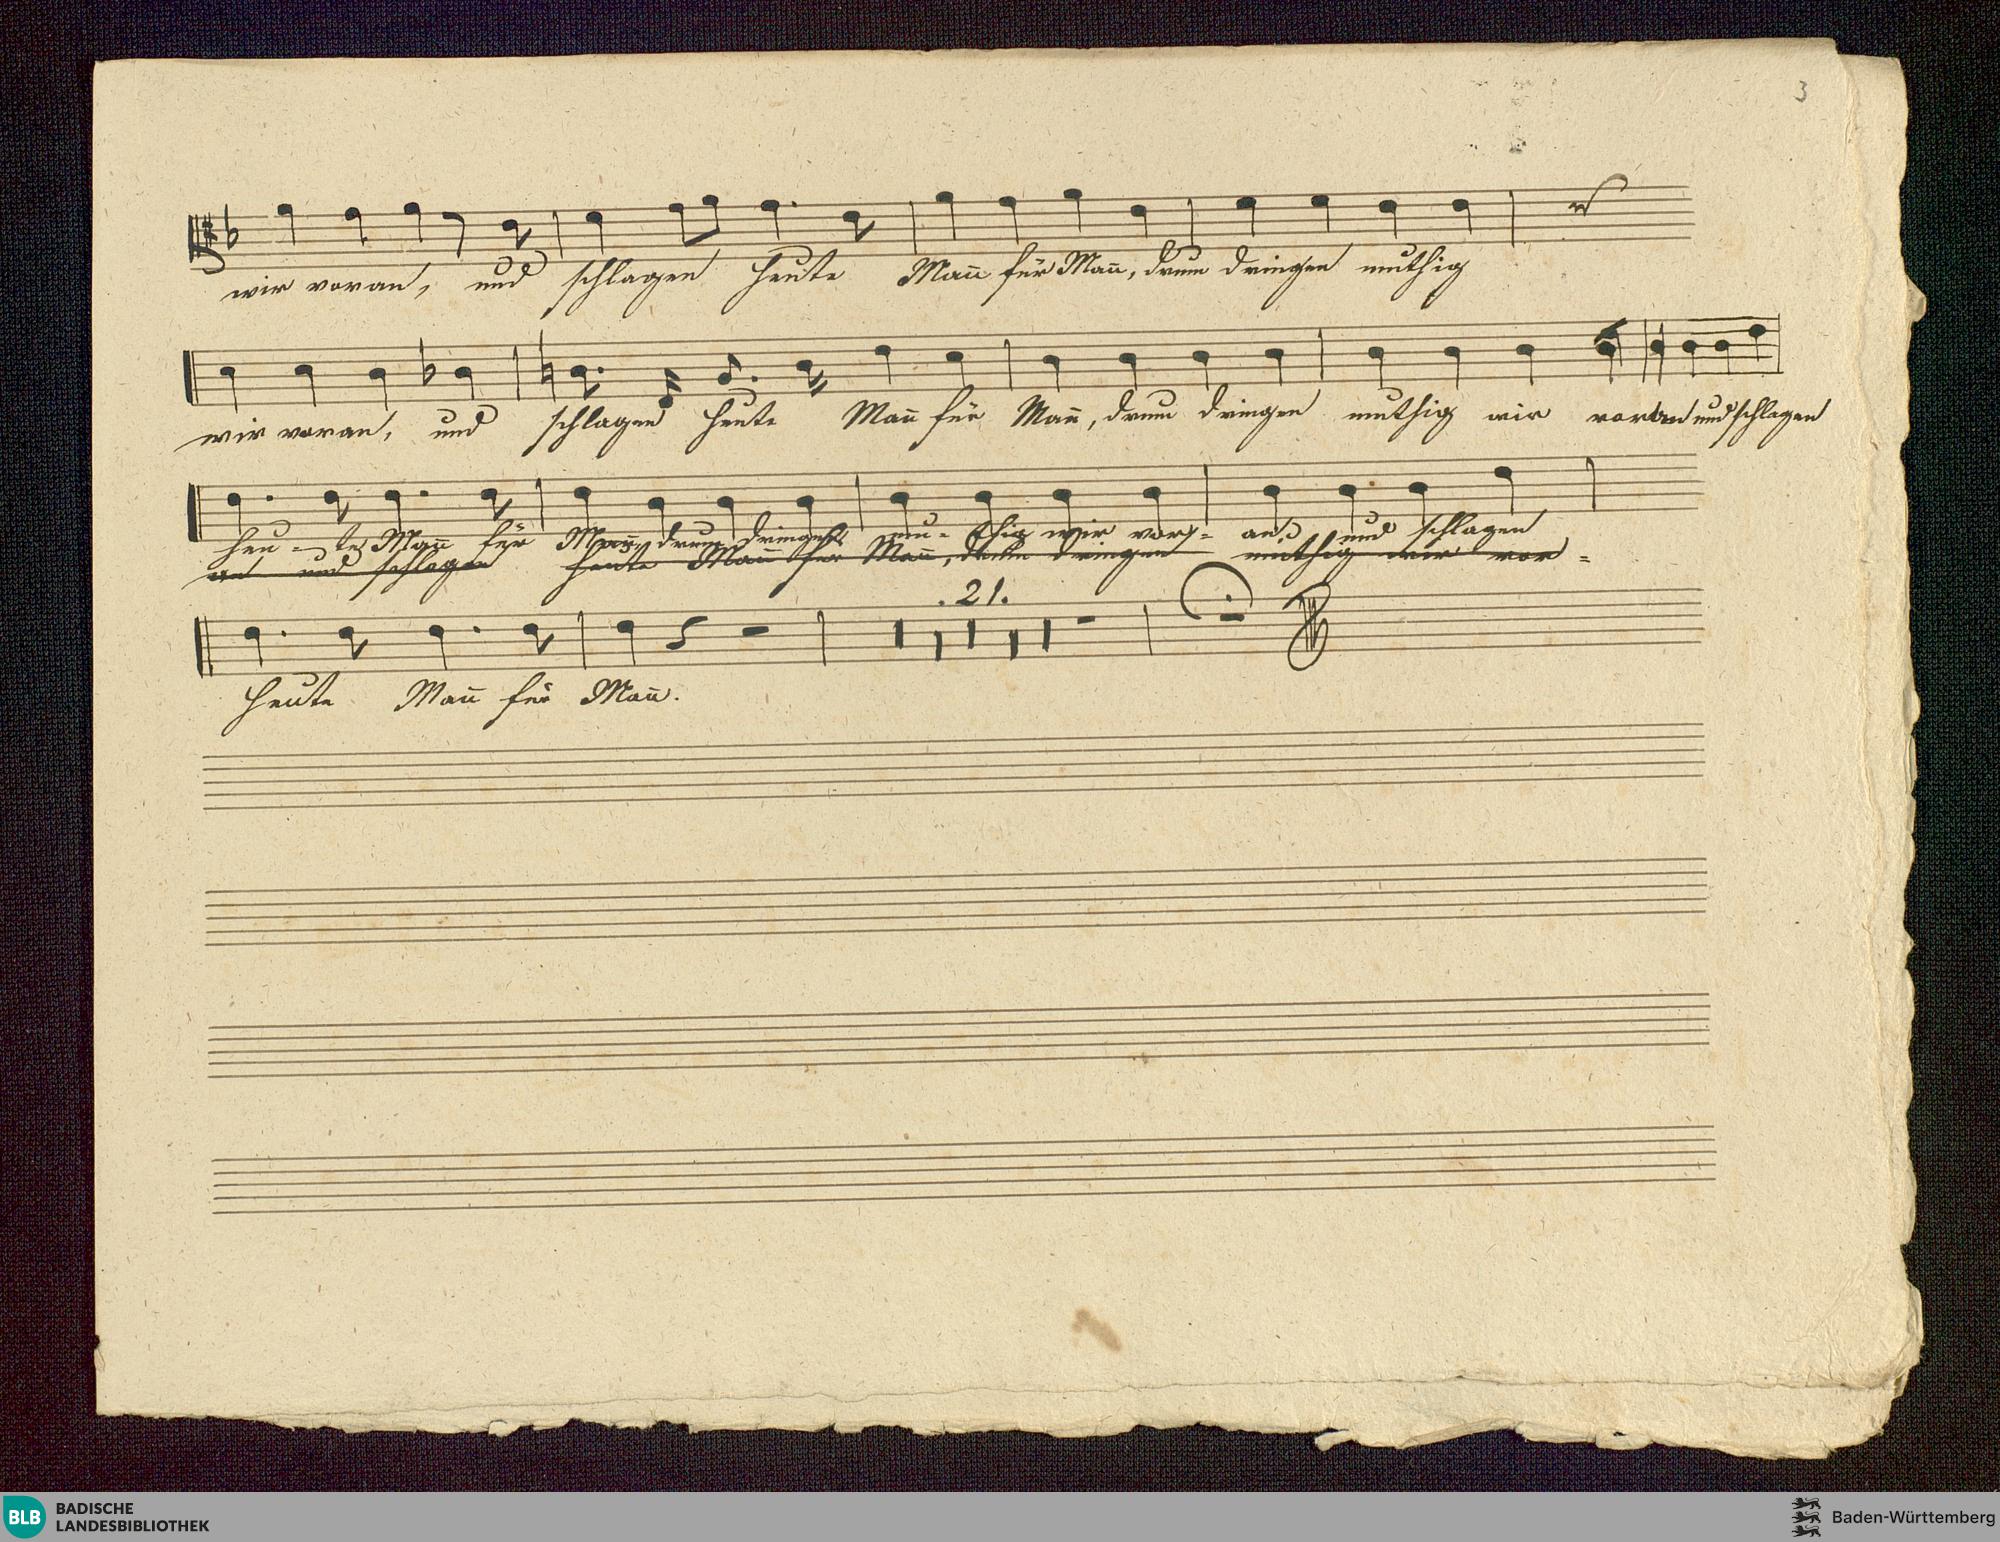 3
wir voran, und schlagen heute Mañ für Mañ, drum dringen muthig
wir voran, und schlagen heute Mañ für Mañ, drum dringen muthig wir voran und schlagen
heu - te Mañ für Mañ, drum dringen mu - thig wir vor - an und schlagen
an und schlagen heute Mañ für Mañ, drum dringen muthig wir vor -
. 21.
heute Mañ für Mañ.
BLB BADISCHE
LANDESBIBLIOTHEK
Baden-Württemberg